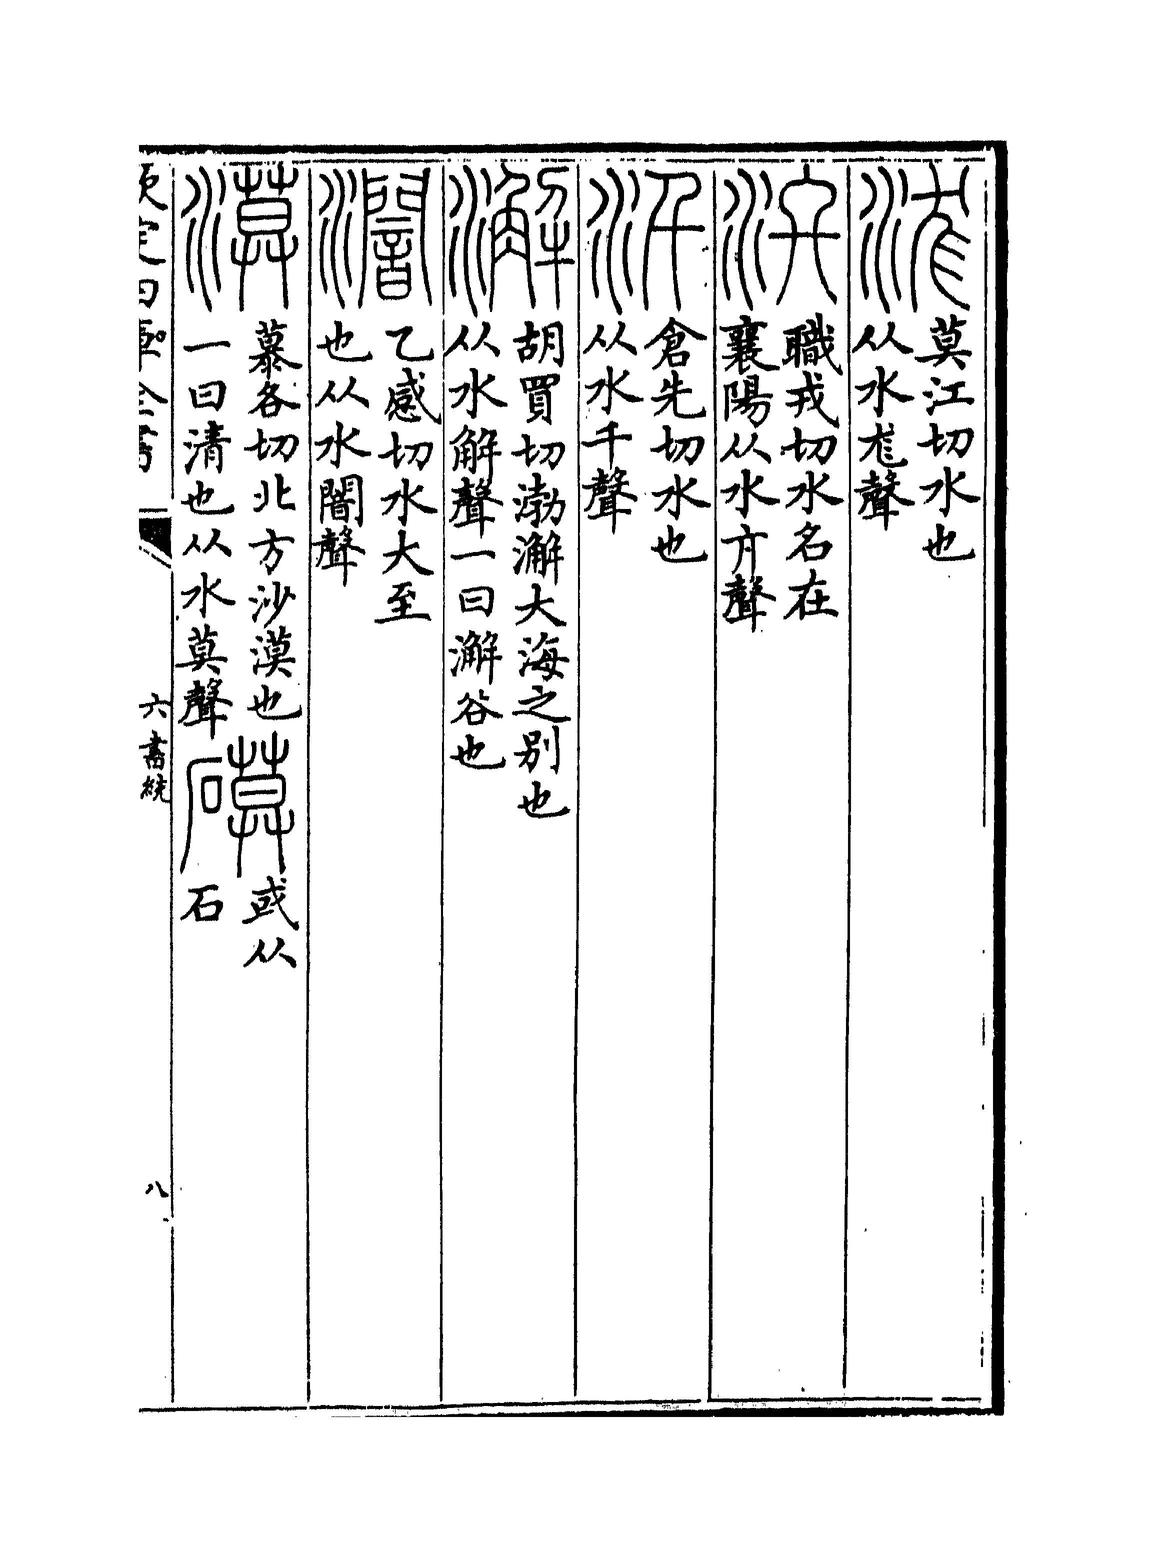 浝
莫江切水也
从水尨聲
職戎切水名在
襄陽从水聲
汘
倉先切水也
从水千聲
澥
胡買切渤澥大海之别也
从水解聲一曰澥谷也
乙感切水大至
也从水闇聲
漠
慕各切北方沙漠也
一曰清也从水莫聲
或从
石
欽定四庫全書
六書統
八